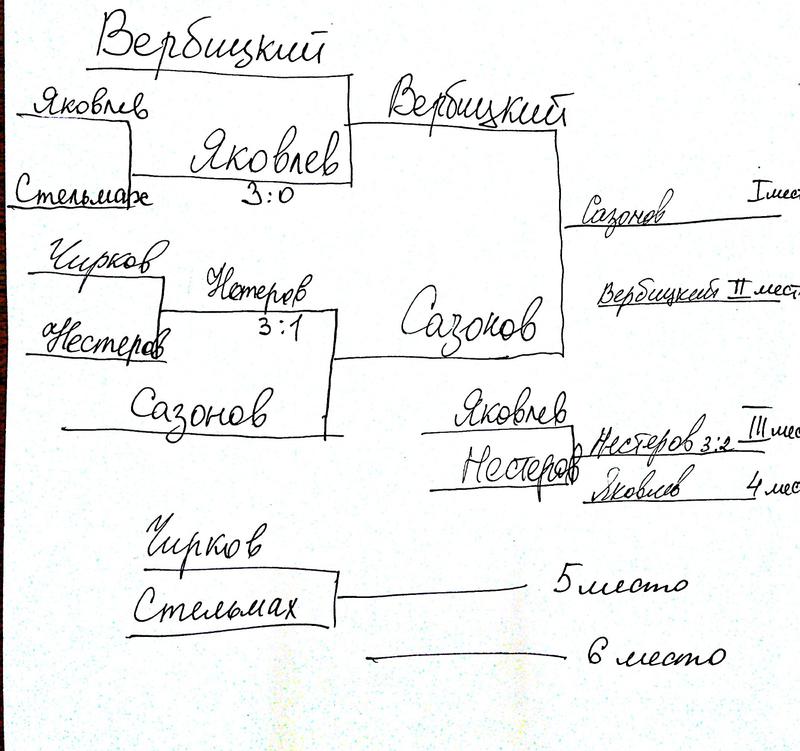 Вербицкий
Яковлев
Вербицкий
Яковлев
3:0
Стельмах
Сазонов I мес
Чирков
Нетеров
Вербицкий II мест
3:1
Сазонов
Нестеров
Сазонов
Яковлев
Нестеров 3:2 III мес
Нестеров
Яковлев 4 мес
Чирков
Стельмах
5 место
6 место